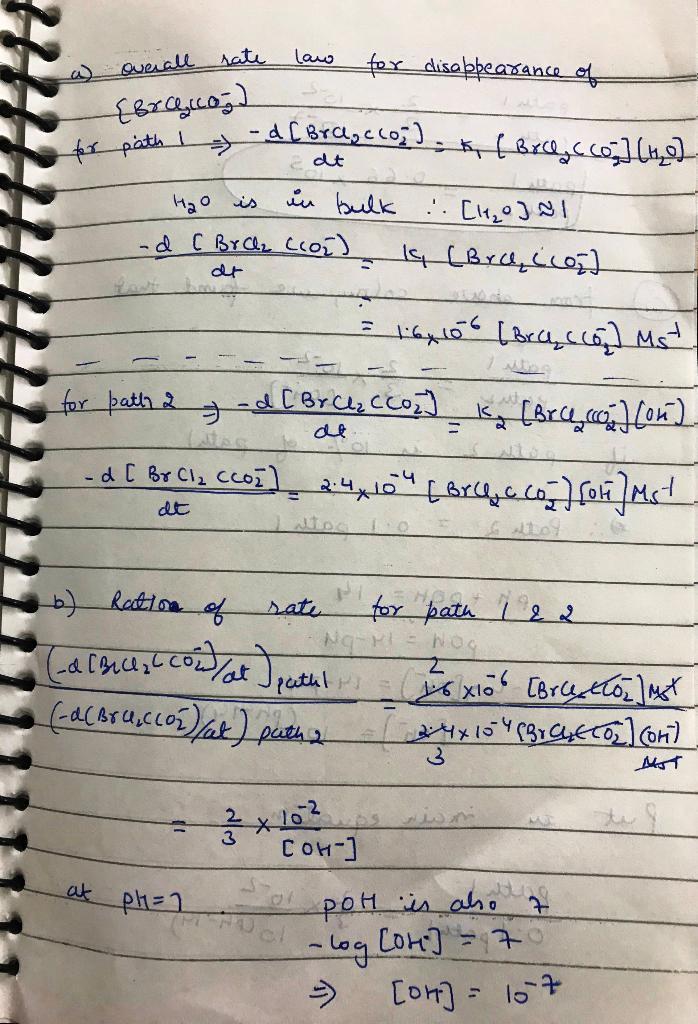 a) overall rate law for disappearance of
[BrCl₂CCO₂⁻]
for path 1 ⇒ -d[BrCl₂CCO₂⁻]/dt = K₁ [BrCl₂CCO₂⁻][H₂O]
H₂O is in bulk ∴ [H₂O] ≈ 1
-d [BrCl₂CCO₂⁻]/dt = K₁ [BrCl₂CCO₂⁻]
= 1.6 x 10⁻⁶ [BrCl₂CCO₂⁻] Ms⁻¹
for path 2 ⇒ -d[BrCl₂CCO₂⁻]/dt = K₂ [BrCl₂CCO₂⁻][OH⁻]
-d[BrCl₂CCO₂⁻]/dt = 2.4 x 10⁻⁴ [BrCl₂CCO₂⁻][OH⁻] Ms⁻¹
b) Ration of rate for path 1 & 2
(-d[BrCl₂CCO₂⁻]/dt) path 1 / (-d[BrCl₂CCO₂⁻]/dt) path 2 = 2 1.6 x 10⁻⁶ [BrCl₂CCO₂⁻] Ms⁻¹ / 2.4 x 10⁻⁴ [BrCl₂CCO₂⁻][OH⁻] Ms⁻¹ 3
= 2/3 x 10⁻²/[OH⁻]
at pH = 7 pOH is also 7
-log [OH⁻] = 7
⇒ [OH⁻] = 10⁻⁷